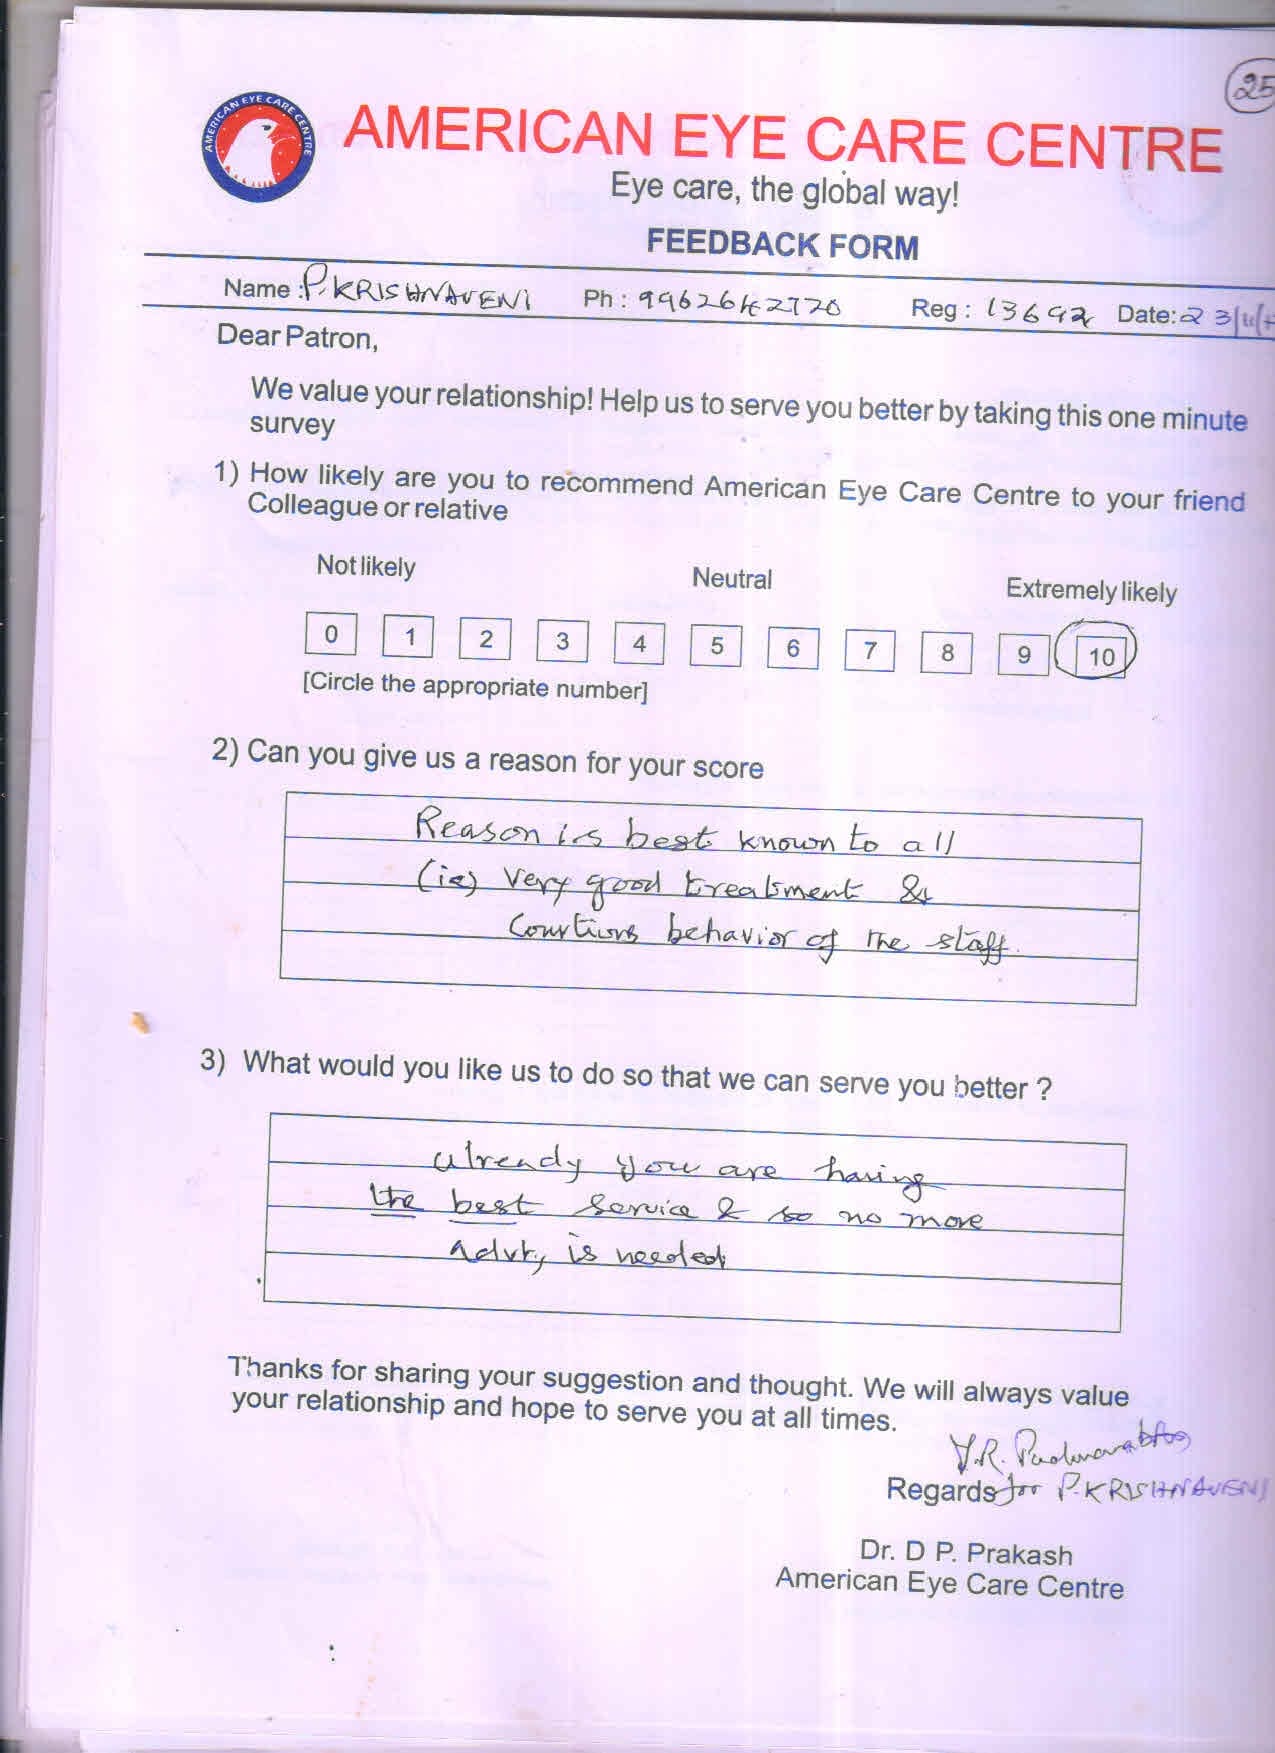 25
AMERICAN EYE CARE CENTRE
AMERICAN EYE CARE CENTRE
Eye care, the global way!
FEEDBACK FORM
Name : P. KRISHNAVENI Ph : 9962642770 Reg : 13692 Date: 23/11/
Dear Patron,
We value your relationship! Help us to serve you better by taking this one minute
survey
1) How likely are you to recommend American Eye Care Centre to your friend
Colleague or relative
Not likely Neutral Extremely likely
0 1 2 3 4 5 6 7 8 9 10
[Circle the appropriate number]
2) Can you give us a reason for your score
Reason is best known to all
(ie) Very good treatment &
behavior of the staff.
3) What would you like us to do so that we can serve you better ?
already you are having
the best service & so no more
is needed
Thanks for sharing your suggestion and thought. We will always value
your relationship and hope to serve you at all times.
Regards for P. KRISHNAVENI
Dr. D P. Prakash
American Eye Care Centre